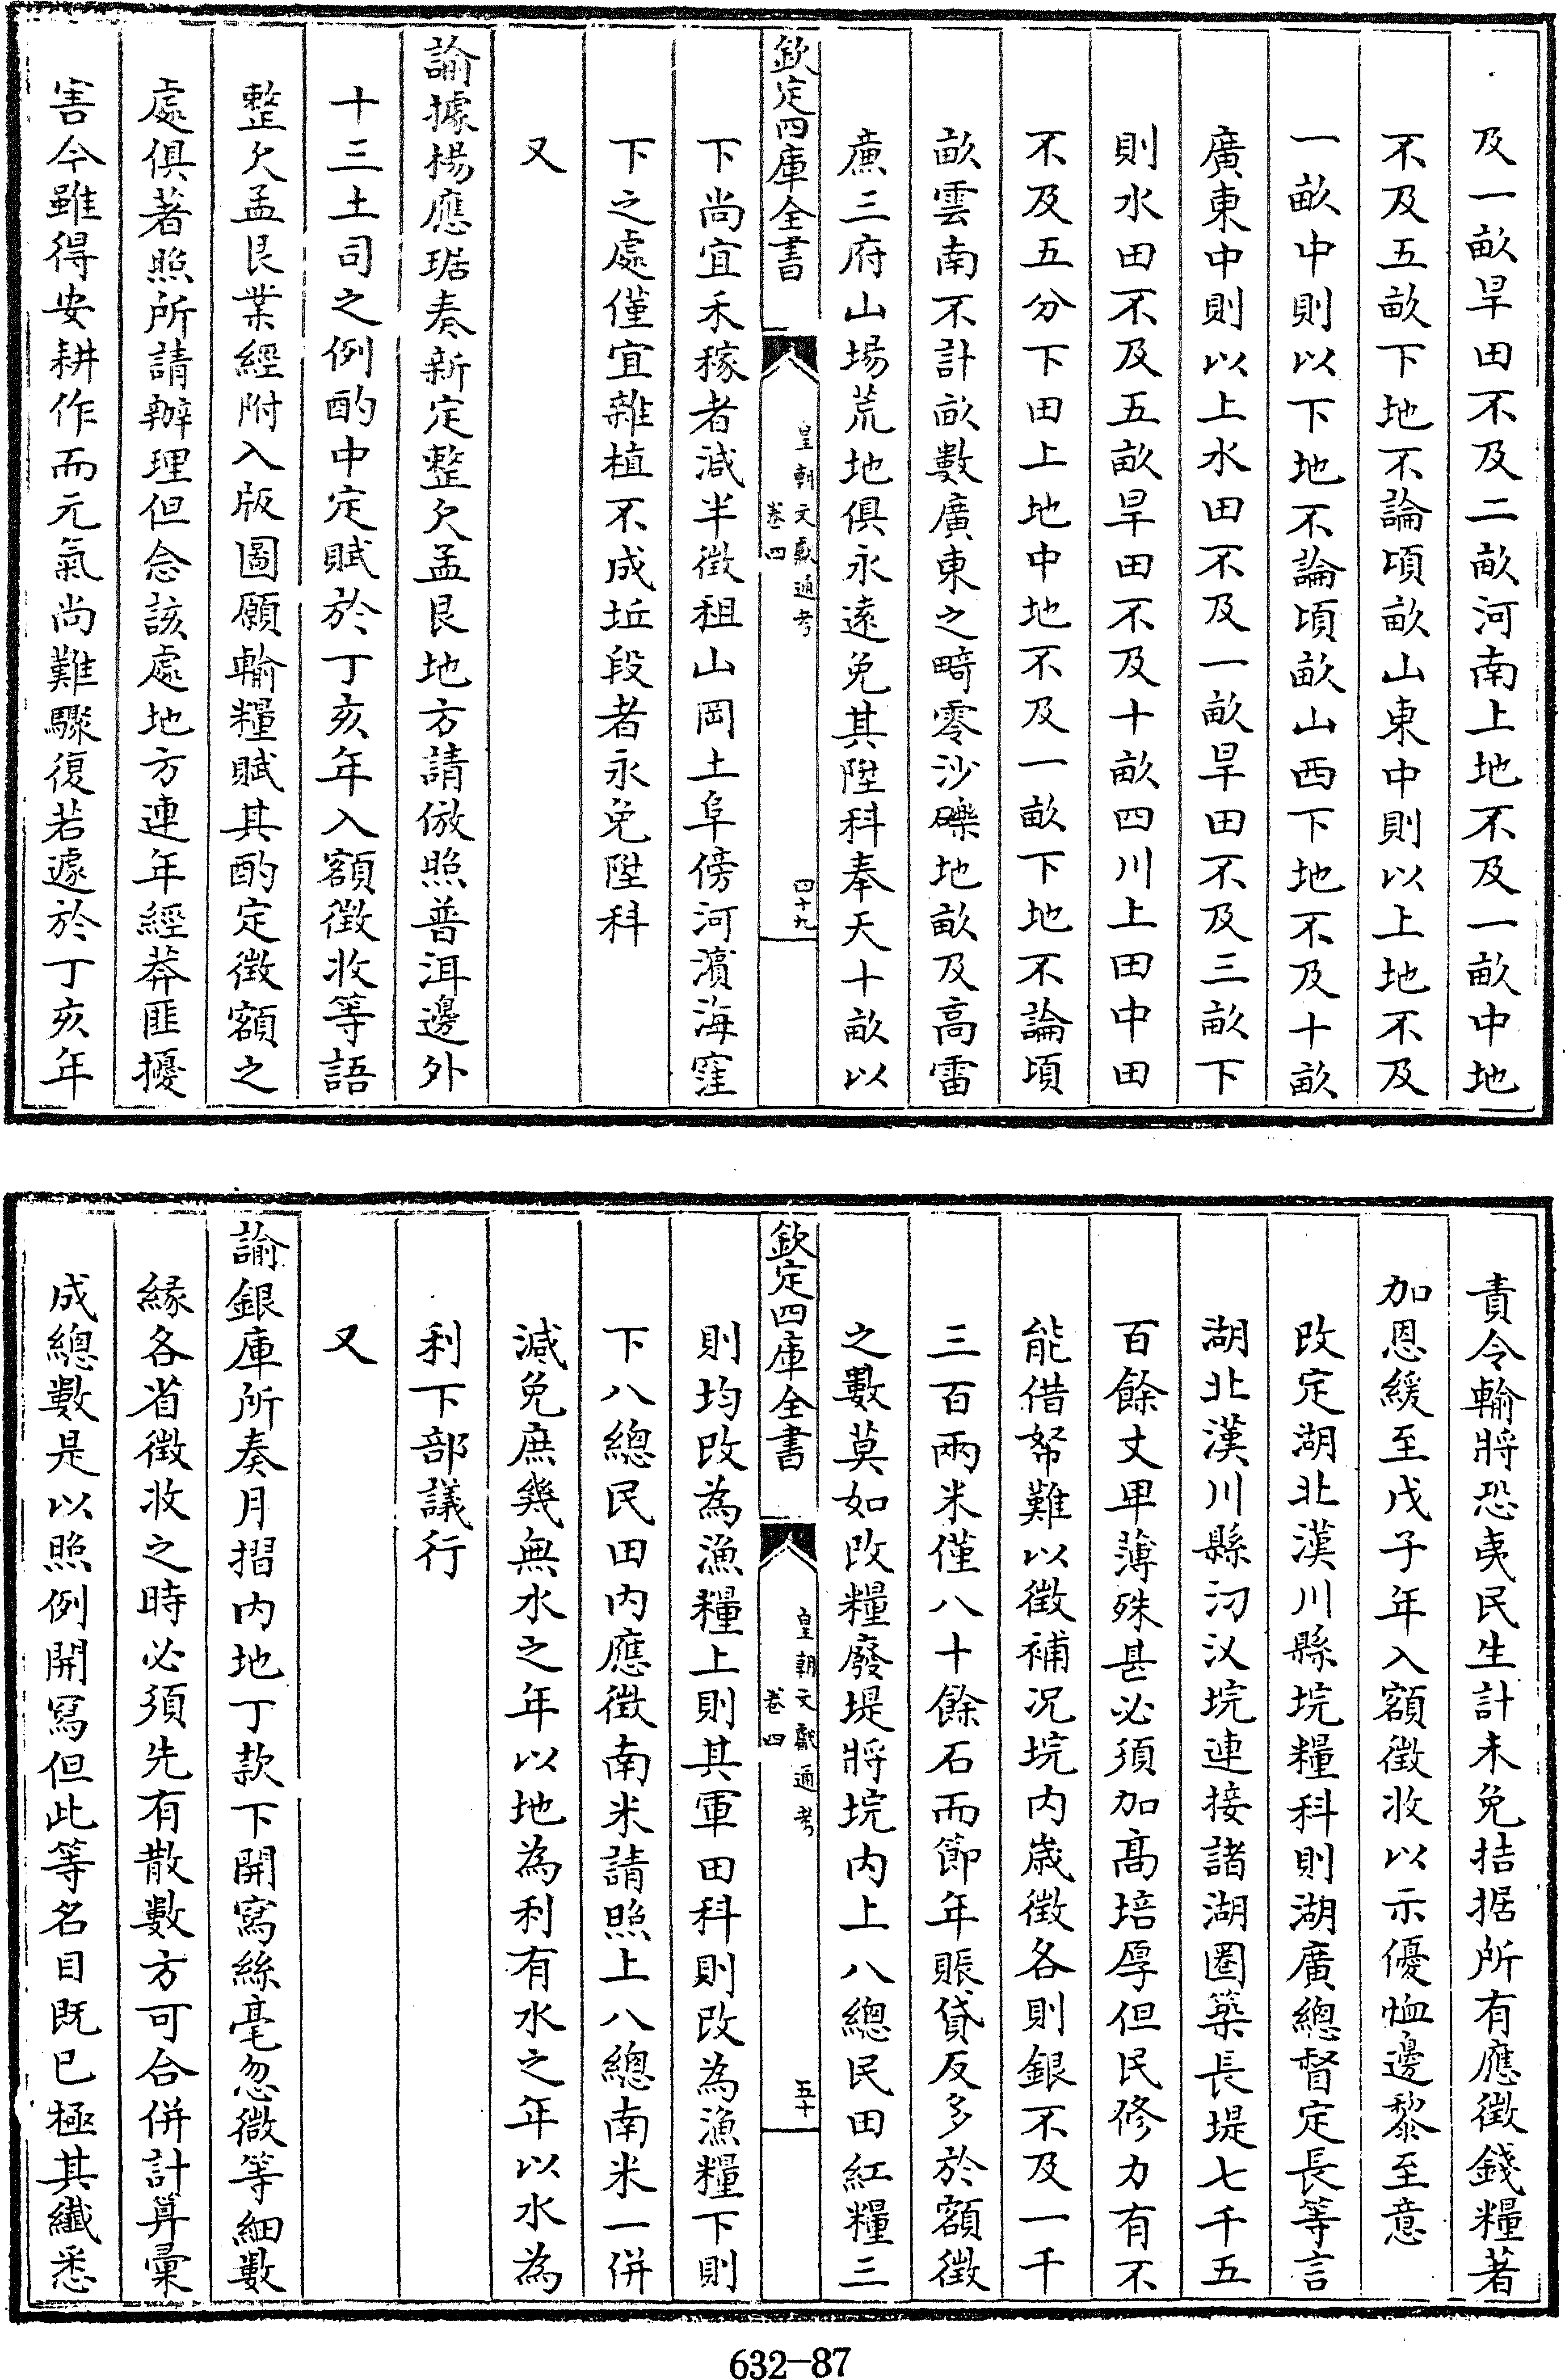 及一畝旱田不及二畝河南上地不及一畝中地
不及五畝下地不論頃畝山東中則以上地不及
一畝中則以下地不論頃畝山西下地不及十畝
廣東中則以上水田不及一畝旱田不及三畝下
則水田不及五畝旱田不及十畝四川上田中田
不及五分下田上地中地不及一畝下地不論頃
畝雲南不計畝數廣東之畸零沙礫地畝及高雷
廉三府山場荒地俱永遠免其陞科奉天十畝以
欽定四庫全書
皇朝文獻通考
卷四
四十九
下尚宜禾稼者減半徵租山岡土阜傍河濱海窪
下之處僅宜雜植不成坵段者永免陞科
又
諭據楊應琚奏新定整欠孟艮地方請倣照普洱邊外
十三土司之例酌中定賦於丁亥年入額徵收等語
整欠孟艮業經附入版圖願輸糧賦其酌定徵額之
處俱著照所請辦理但念該處地方連年經莽匪擾
害今雖得安耕作而元氣尚難驟復若遽於丁亥年
責令輸將恐夷民生計未免拮据所有應徵錢糧著
加恩緩至戊子年入額徵收以示優恤邊黎至意
改定湖北漢川縣垸糧科則湖廣總督定長等言
湖北漢川縣汈汊垸連接諸湖圈築長堤七千五
百餘丈單薄殊甚必須加高培厚但民修力有不
能借帑難以徵補况垸内歲徵各則銀不及一千
三百兩米僅八十餘石而節年賑貸反多於額徵
之數莫如改糧廢堤將垸内上八總民田紅糧三
欽定四庫全書
皇朝文獻通考
卷四
五十
則均改為漁糧上則其軍田科則改為漁糧下則
下八總民田内應徵南米請照上八總南米一併
減免庶幾無水之年以地為利有水之年以水為
利下部議行
又
諭銀庫所奏月摺内地丁款下開寫絲毫忽微等細數
緣各省徵收之時必須先有散數方可合併計算彙
成總數是以照例開寫但此等名目既已極其纖悉
632-87